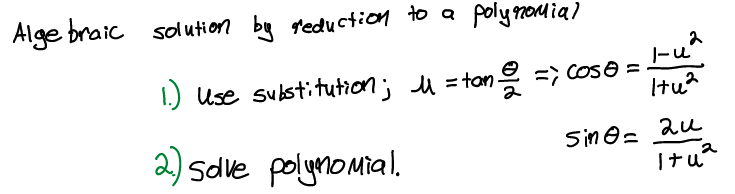 Algebraic solution by reduction to a polynomial
1.) Use substitution; u = tan θ/2 => cosθ = (1-u²)/(1+u²)
sinθ = 2u/(1+u²)
2.) Solve polynomial.